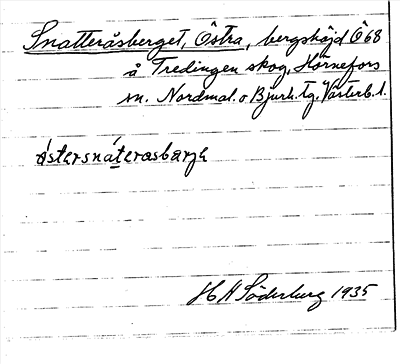 Snatteråsberget, Östra, bergshöjd Ö 68
å Tredingen skog, Hörnefors
sn. Nordmal. o Bjurh. tg. Västerb. l.
östersnáterosbärje
H A Söderberg 1935